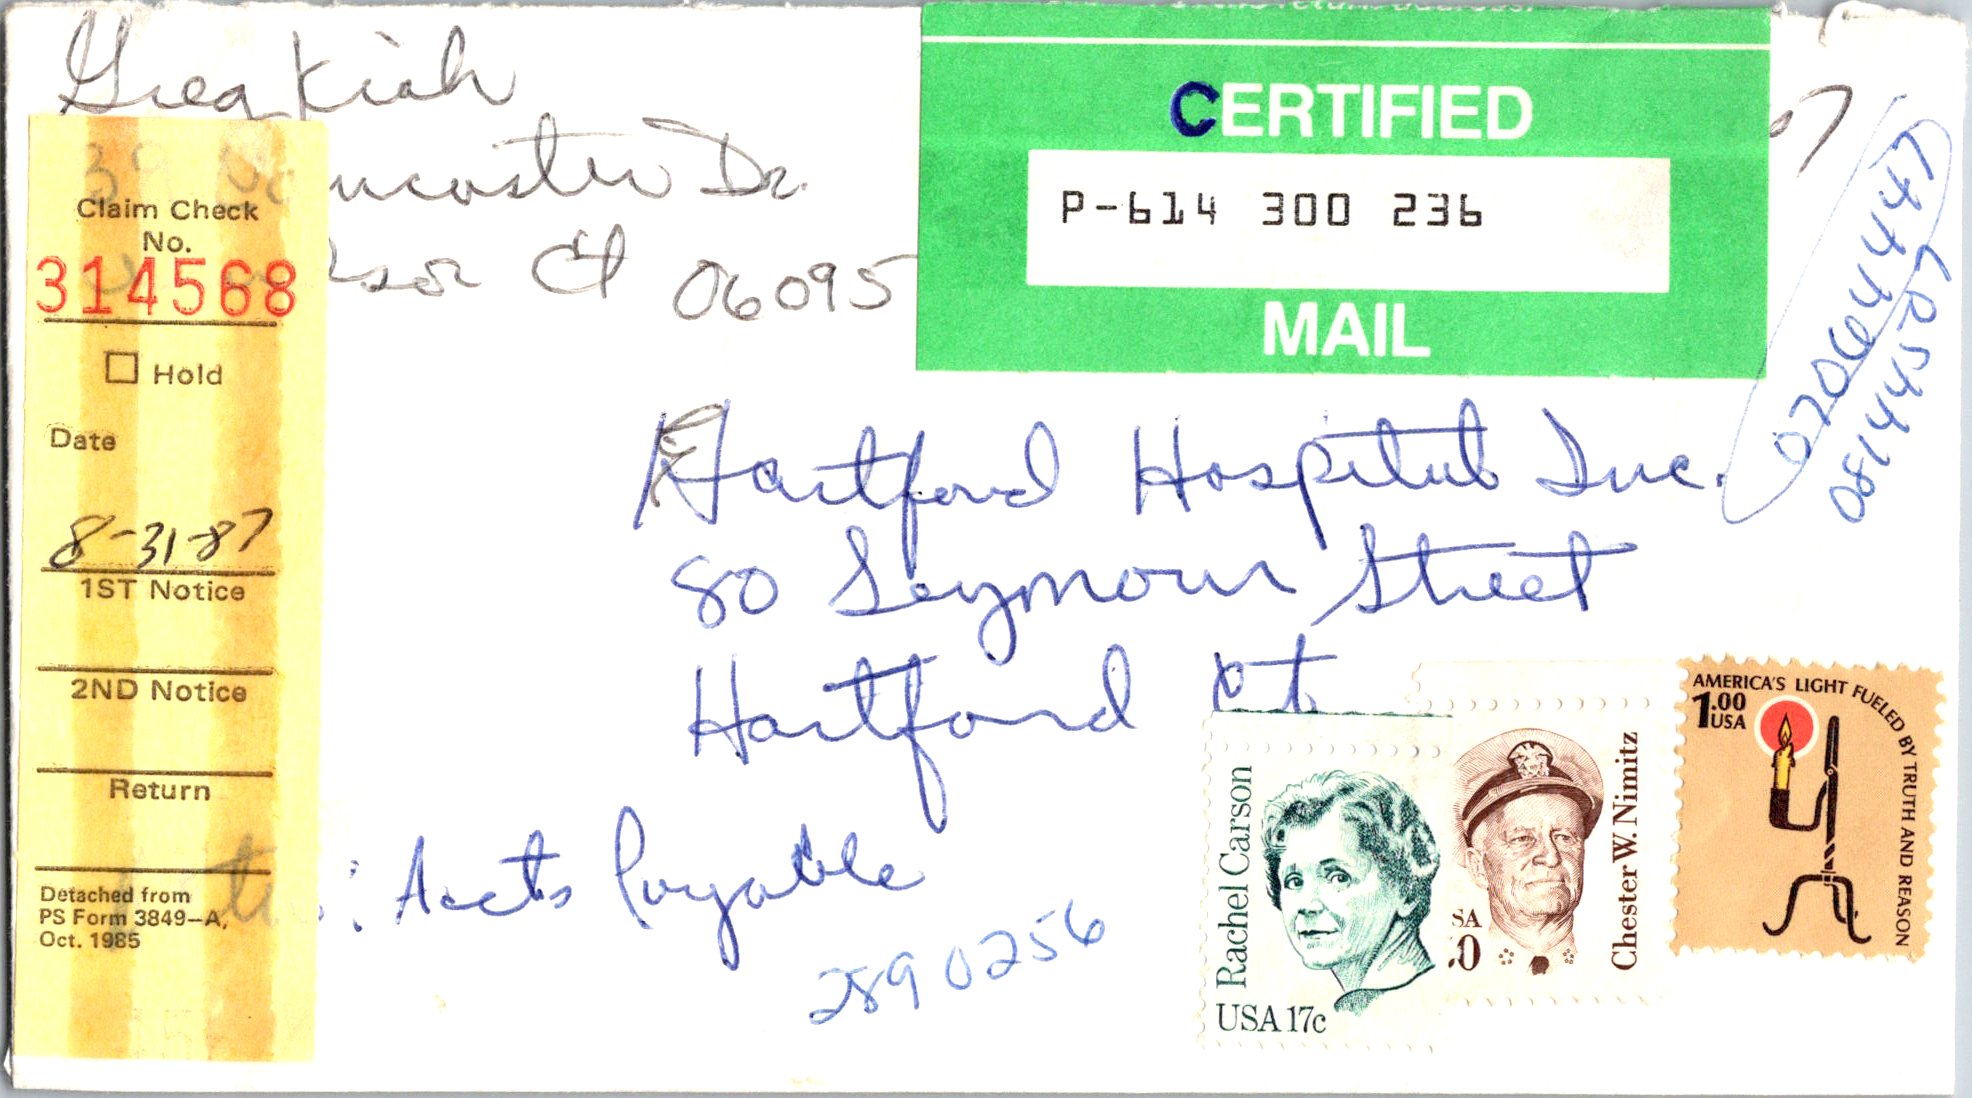 Greg Kish
39 Lancaster Dr.
Windsor Ct 06095
CERTIFIED
P-614 300 236
MAIL
07
0814444507
Claim Check
No.
314568
Hold
Date
8-31-87
1ST Notice
2ND Notice
Return
Detached from
PS Form 3849-A,
Oct. 1985
Hartford Hospital Inc.
80 Seymour Street
Hartford Ct
Attn: Accts Payable
289 0256
Rachel Carson
USA 17c
Chester W. Nimitz
AMERICA'S LIGHT FUELED BY TRUTH AND REASON
1.00
USA